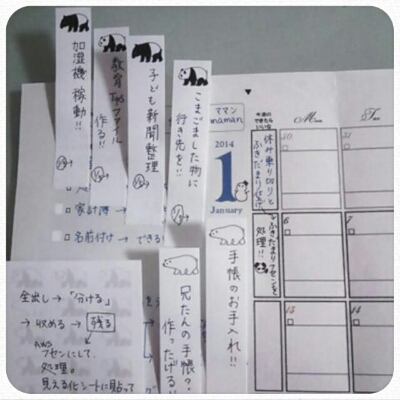 加湿機 稼動!!
教育
ファイル
作る!!
子ども新聞整理
こまごました物に
行き先を!!
ママン
maman
2014
1
January
今週の
できたら
いいな
休み乗り切りと
処理!!
家計簿→
名前付け→できる
手帳のお手入れ!!
兄たんの手帳?
作ったげる!!
全出し→「分ける」
→収める→残る
フセンにして
処理。
見える化シートに貼って
30
31
6
7
13
14